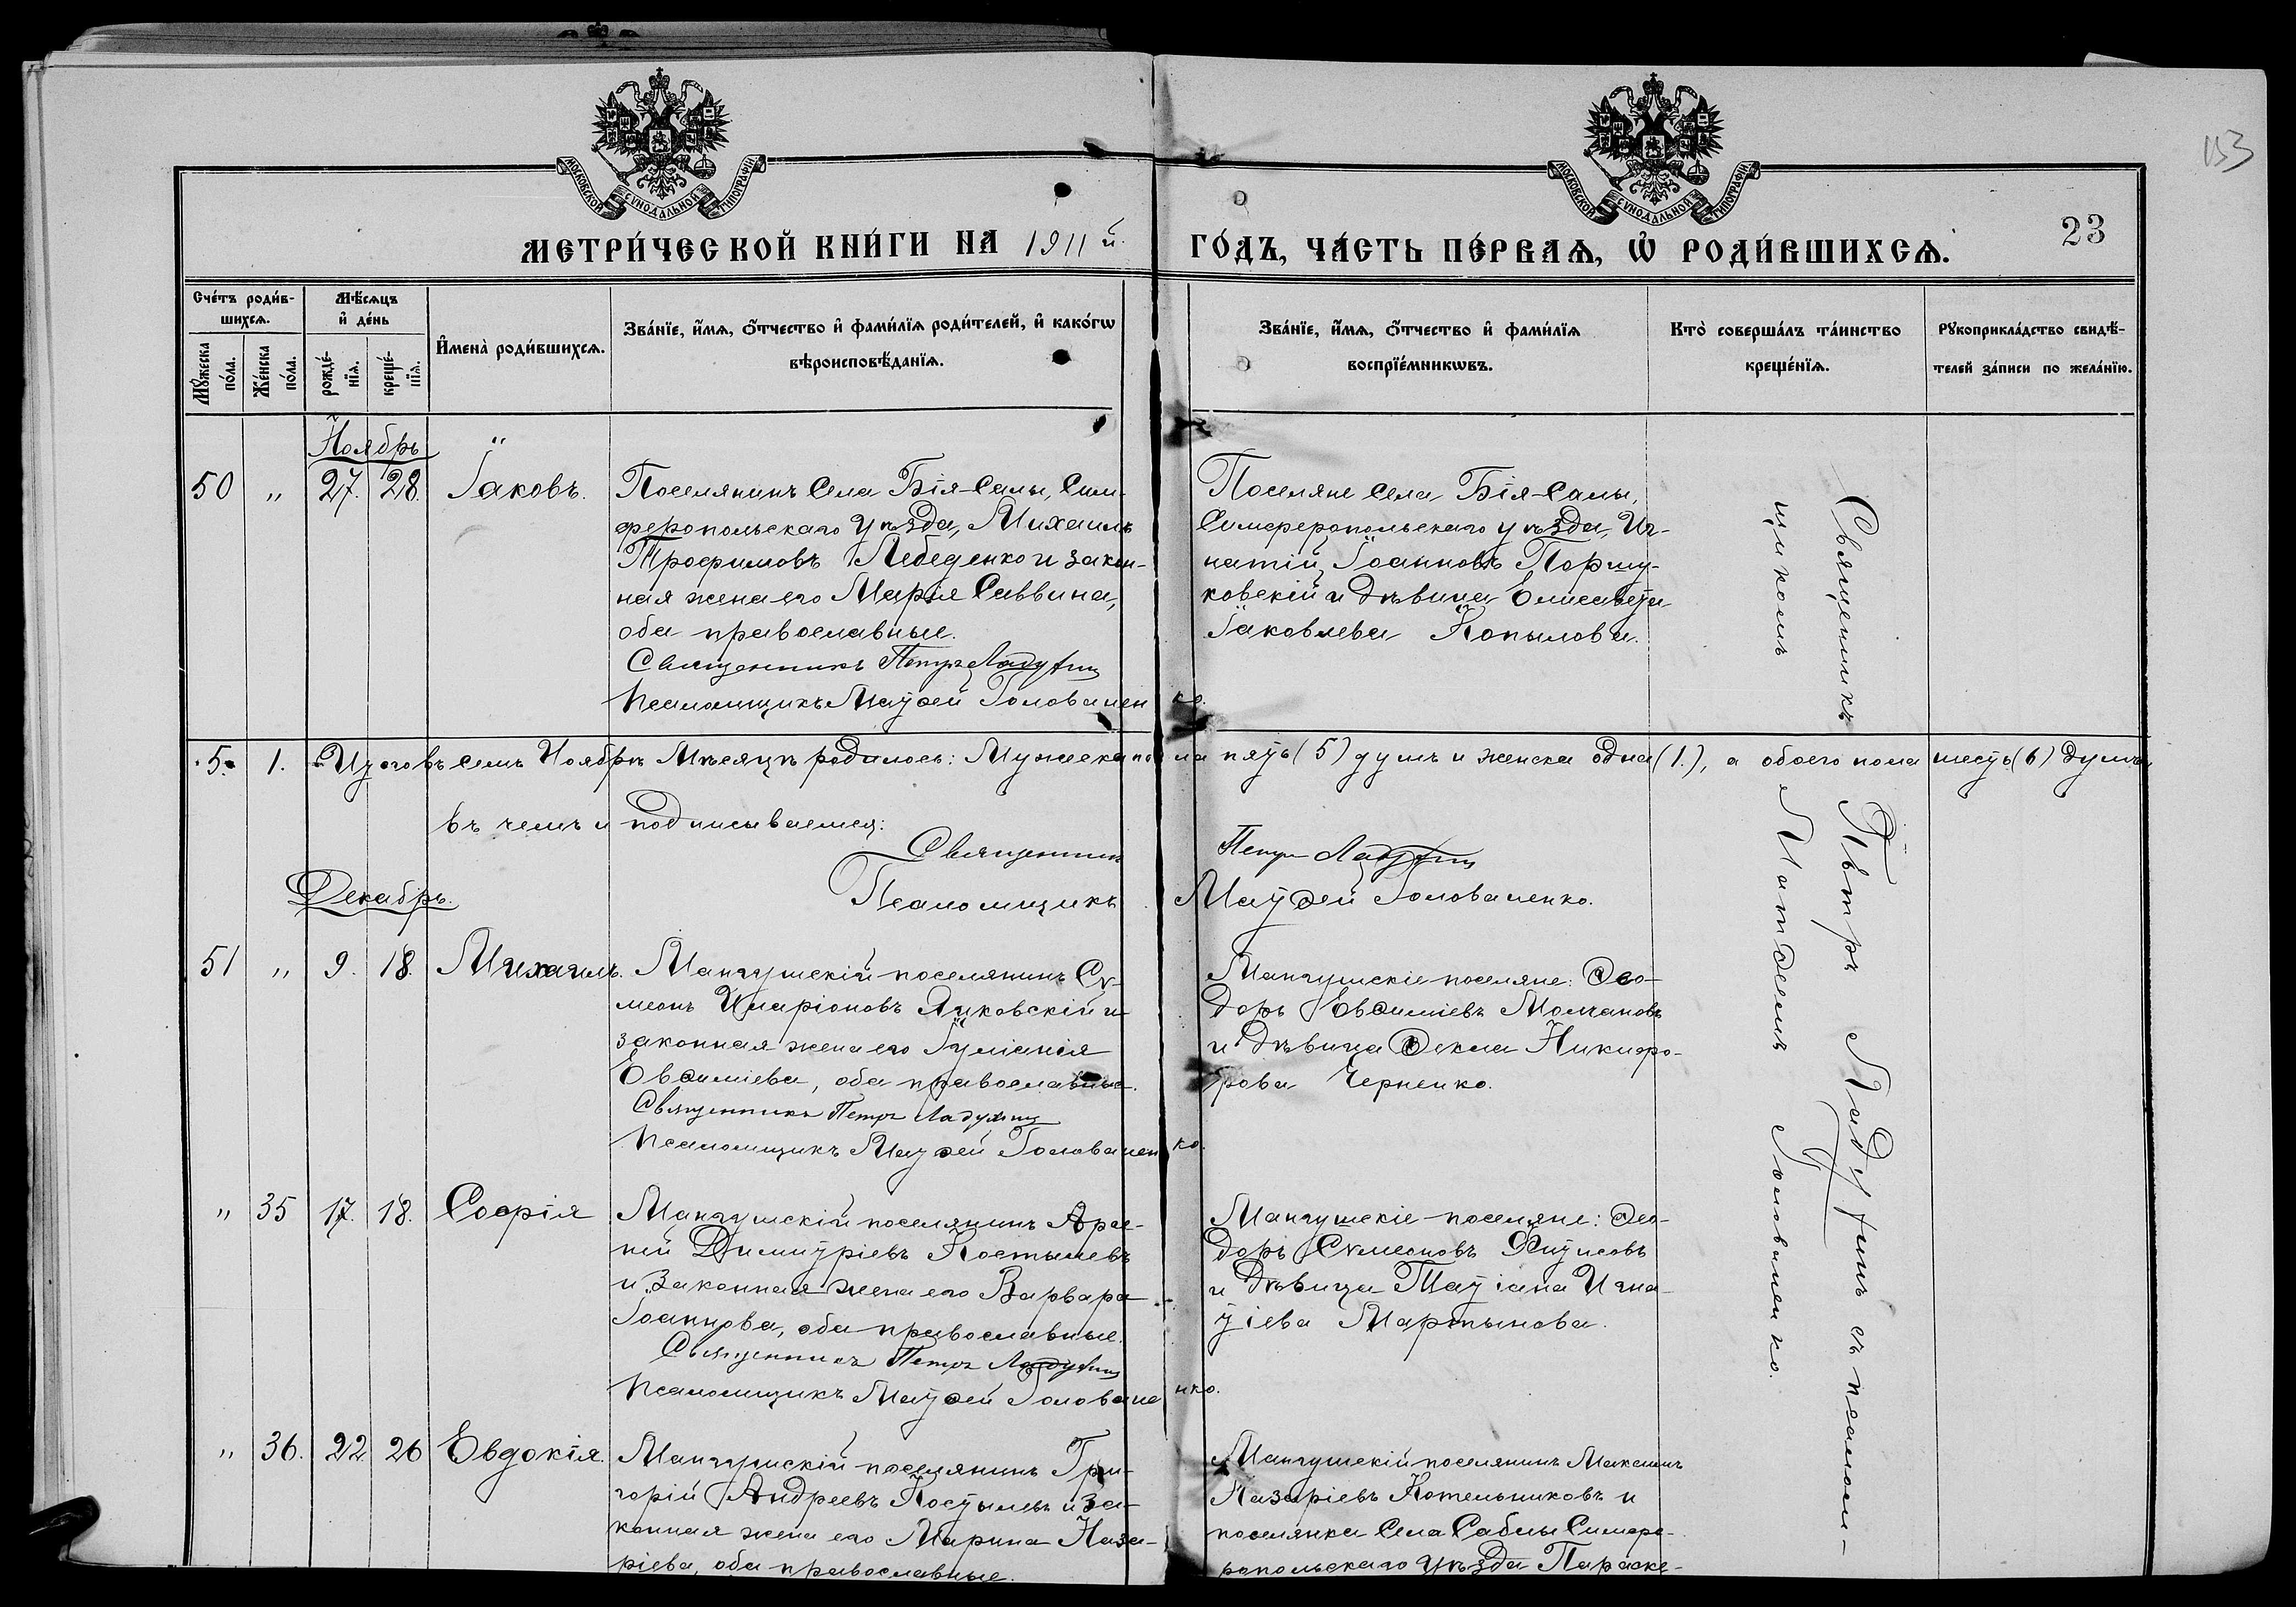 МОСКОВСКОЙ СѴНОДАЛЬНОЙ ТИПОГРАФІИ
МОСКОВСКОЙ СѴНОДАЛЬНОЙ ТИПОГРАФІИ
153
23
МЕТРИ́ЧЕСКОЙ КНИ́ГИ НА 1911й.
ГО́ДЪ, ЧА́СТЬ ПЕ́РВАѦ, Ѡ҆ РОДИ́ВШИХСѦ.
Сче́тъ роди́в-
шихсѧ.
Мѣ́сѧцъ
и҆ де́нь
Мꙋ́жеска
по́ла.
Же́нска
по́ла.
рожде́-
нїѧ.
креще́-
нїѧ.
И҆мена̀ роди́вшихсѧ.
Зва́нїе, и҆́мѧ, ѻ҆́тчество и҆ фами́лїѧ роди́телей, и҆ како́гѡ
вѣроисповѣ́данїѧ.
Зва́нїе, и҆́мѧ, ѻ҆́тчество и҆ фами́лїѧ
воспрїе́мникѡвъ.
Кто̀ соверша́лъ та́инство
креще́нїѧ.
Рꙋкоприкла́дство свидѣ́-
телей за́писи по жела́нїю.
Ноябрь
50 " 27. 28. Іаковъ.
Поселянинъ села Бія-Салы, Сим-
феропольскаго уѣзда, Михаилъ
Трофимовъ Лебеденко и закон-
ная жена его Марія Саввина,
оба православные.
Священникъ Петръ Ладухинъ
Псаломщикъ Матѳей Голованенко.
Поселяне села Бія-Салы,
Симферопольскаго уѣзда, Иг-
натій Іоанновъ Поршу-
ковскій и дѣвица Елисавета
Іаковлева Копылова.
Священникъ Петръ Ладухинъ съ псалом-
щикомъ Матѳеемъ Голованенко.
5. 1. Итого въ семъ Ноябрѣ мѣсяцѣ родилось: мужеска пола пять (5) душъ и женска одна (1.), а обоего пола шесть (6) душъ,
въ чемъ и подписываемся:
Священникъ Петръ Ладухинъ
Псаломщикъ Матѳей Голованенко.
Декабрь.
51 " 9. 18. Михаилъ.
Мангушскій поселянинъ Сѵ-
меонъ Иларіоновъ Янковскій и
законная жена его Іуліанія
Евѳиміева, оба православные.
Священникъ Петръ Ладухинъ
Псаломщикъ Матѳей Голованенко.
Мангушскіе поселяне: Ѳео-
доръ Евѳиміевъ Молчановъ
и дѣвица Ѳекла Никифо-
рова Черненко.
" 35 17. 18. Софія
Мангушскій поселянинъ Арсе-
ній Димитріевъ Костылевъ
и законная жена его Варвара
Іоаннова, оба православные.
Священникъ Петръ Ладухинъ
Псаломщикъ Матѳей Голованенко.
Мангушскіе поселяне: Ѳео-
доръ Сѵмеоновъ
и дѣвица Татіана Игна-
тіева Мартынова.
" 36. 22 26 Евдокія.
Мангушскій поселянинъ Гри-
горій Андреевъ Костылевъ и за-
конная жена его Марина Наза-
ріева, оба православные.
Мангушскій поселянинъ Максимъ
Назаріевъ Котельниковъ и
поселянка села Саблы Симфе-
ропольскаго уѣзда Параске-